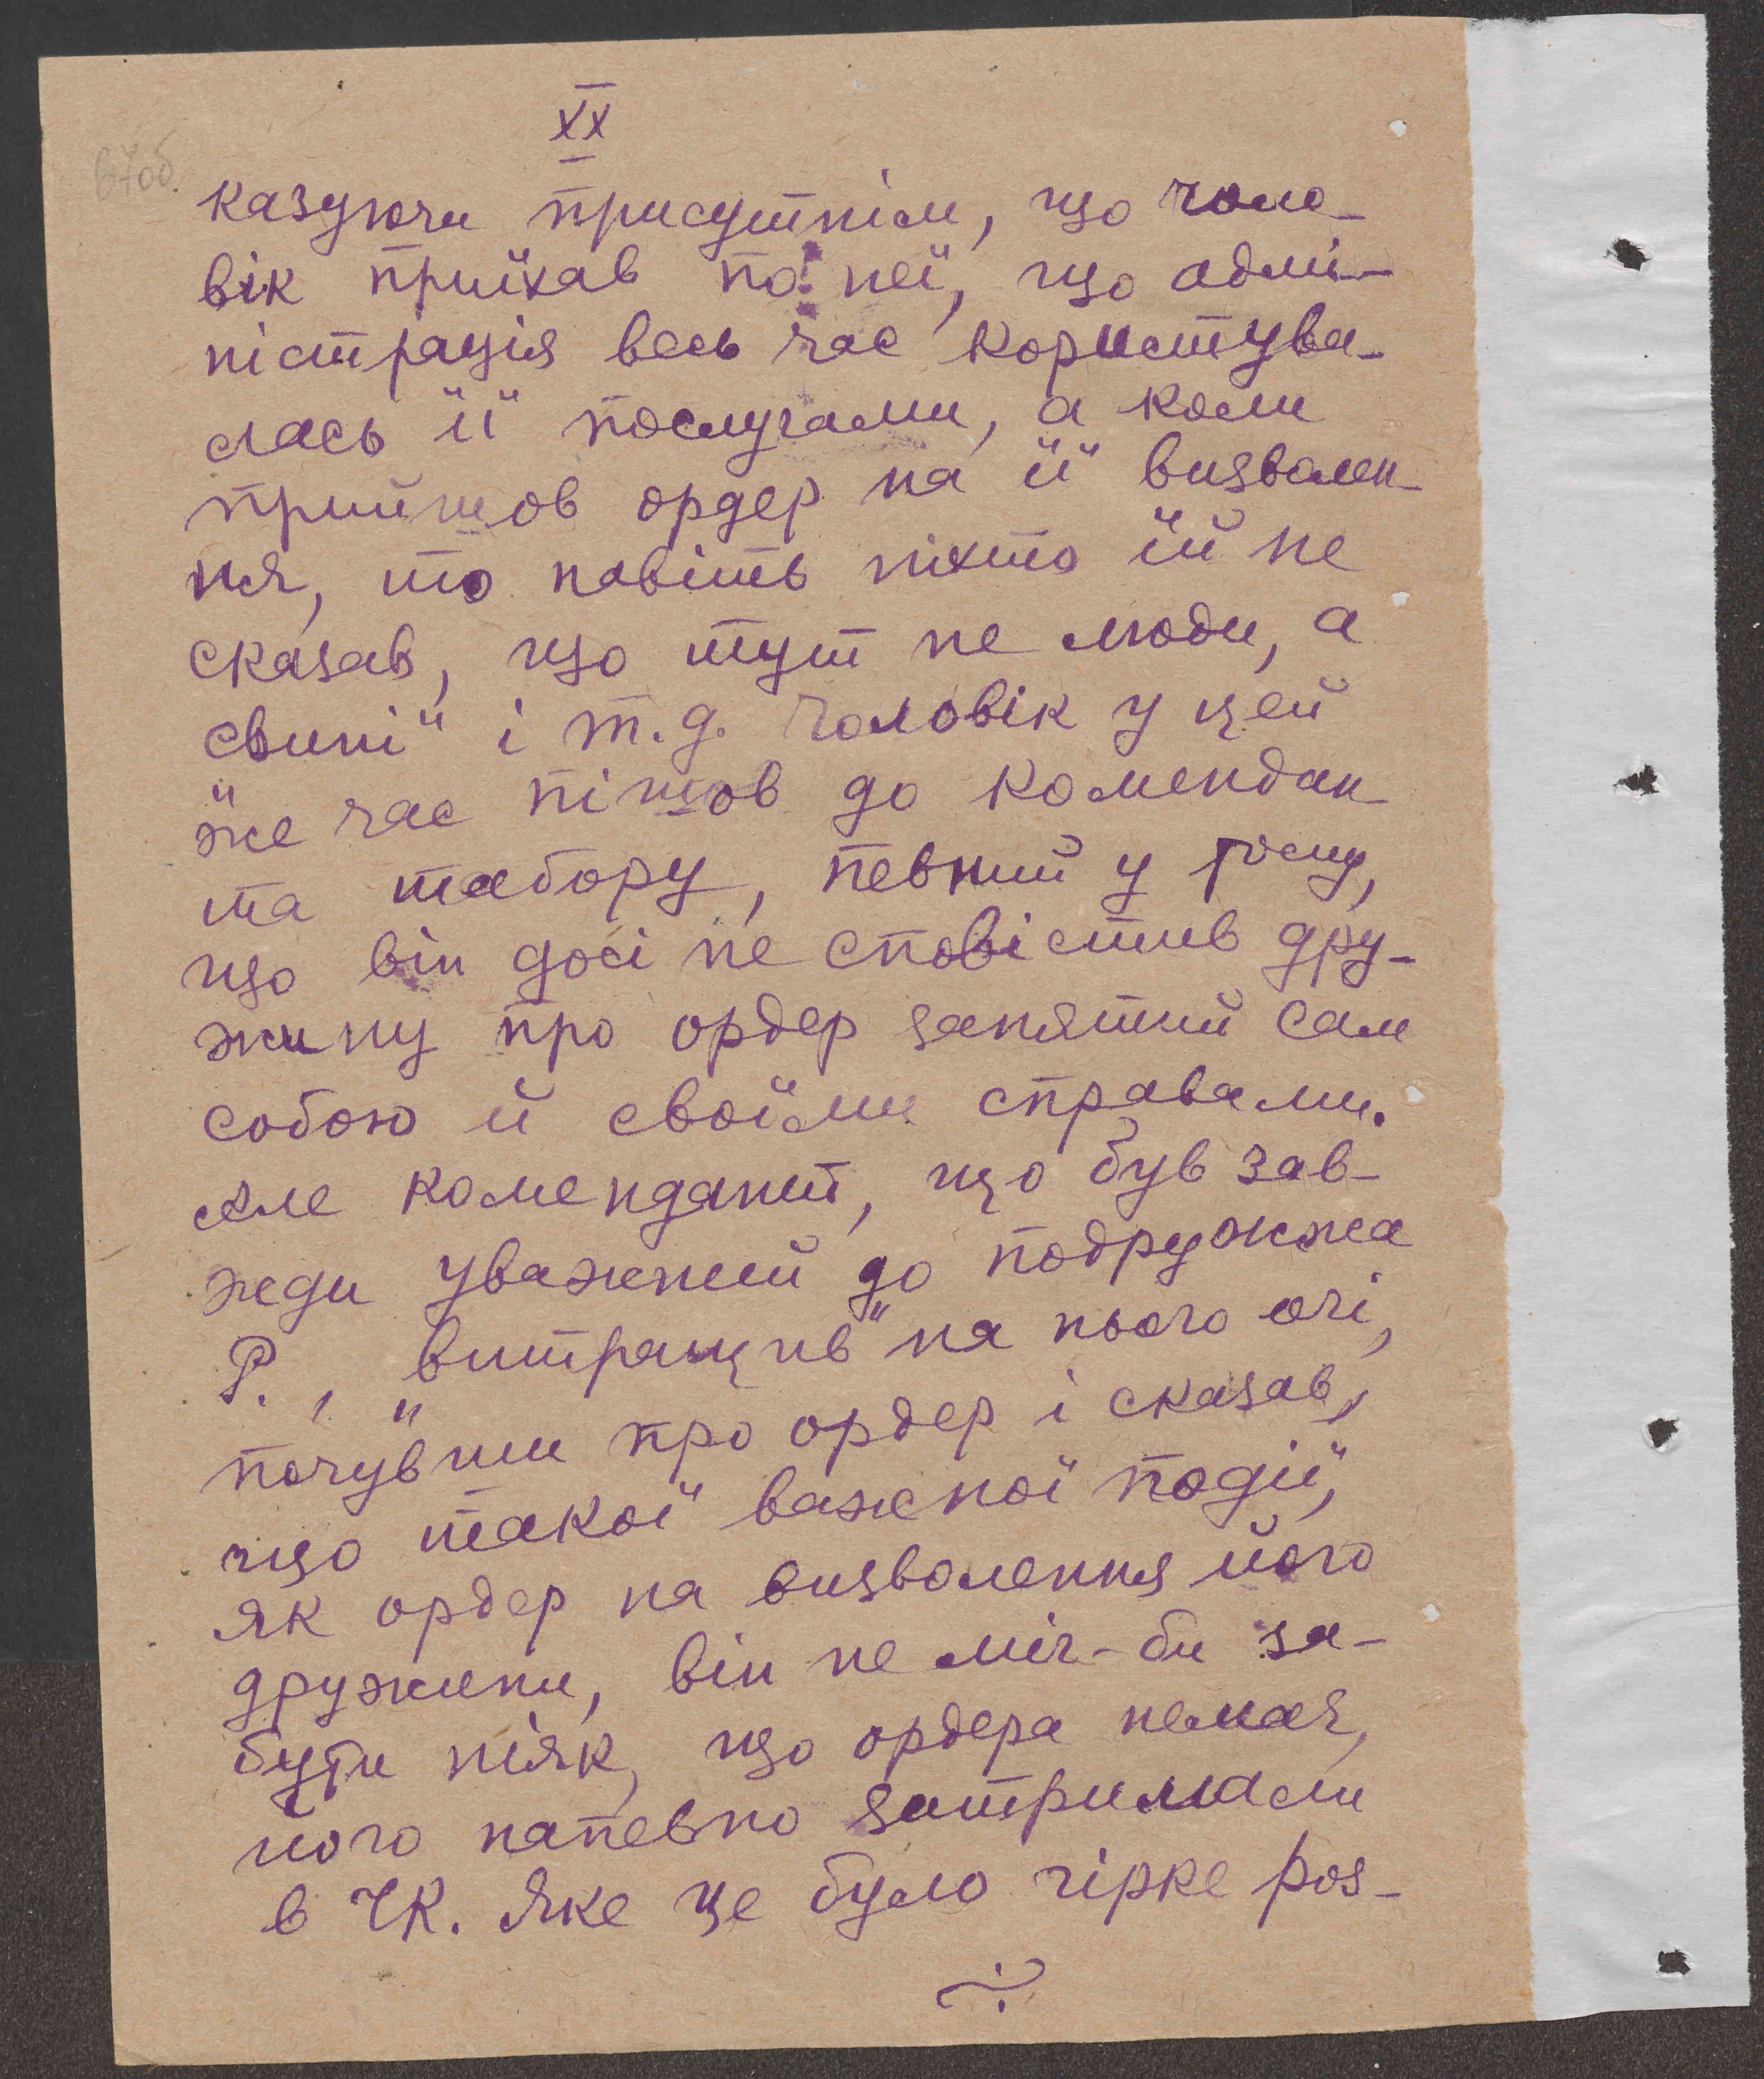 XX
67об.
казуючи присутнім, що чоло-
вік приїхав по неї, що адмі-
ністрація весь час користува-
лась її послугами, а коли
прийшов ордер на її визволен-
ня, то навіть ніхто їй не
сказав, що тут не люди, а
свині" і т. д. Чоловік у цей
же час пішов до комендан-
та табору, певний у тому,
що він досі не сповістив дру-
жину про ордер занятий сам
собою й своїми справами.
Але комендант, що був зав-
жди уважний до подружжа
Р., „витращив" на нього очі,
почувши про ордер і сказав,
що такої важної події,
як ордер на визволення його
дружини, він не міг-би за-
бути ніяк, що ордера немає,
його напевно затримали
в ЧК. Яке це було гірке роз-